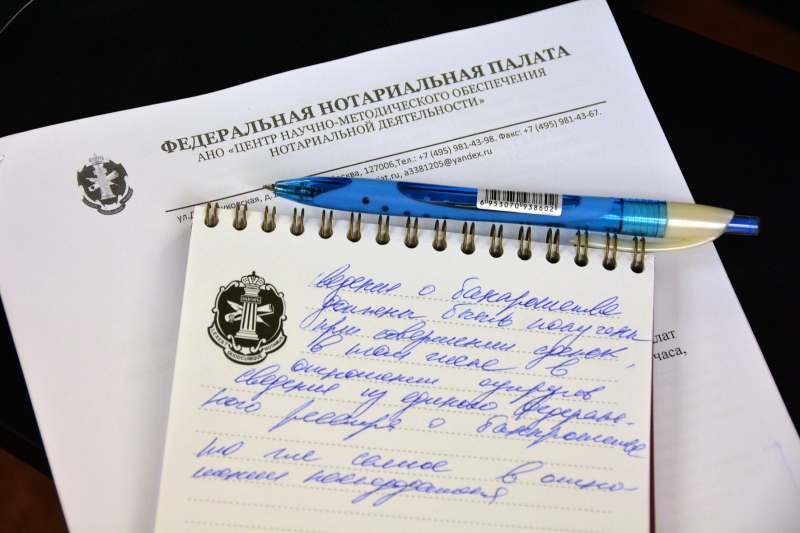 ФЕДЕРАЛЬНАЯ НОТАРИАЛЬНАЯ ПАЛАТА
АНО «ЦЕНТР НАУЧНО-МЕТОДИЧЕСКОГО ОБЕСПЕЧЕНИЯ
НОТАРИАЛЬНОЙ ДЕЯТЕЛЬНОСТИ»
127006,Тел.: +7 (495) 981-43-98. Факс: +7 (495) 981-43-67.
a3381205@yandex.ru
6 953070 938602
лат
часа,
сведения о банкротстве
должны быть получены
при совершении сделок,
в том числе в
отношении супругов
сведения из единого федераль-
ного реестра о банкротстве
то же самое в отно-
шении